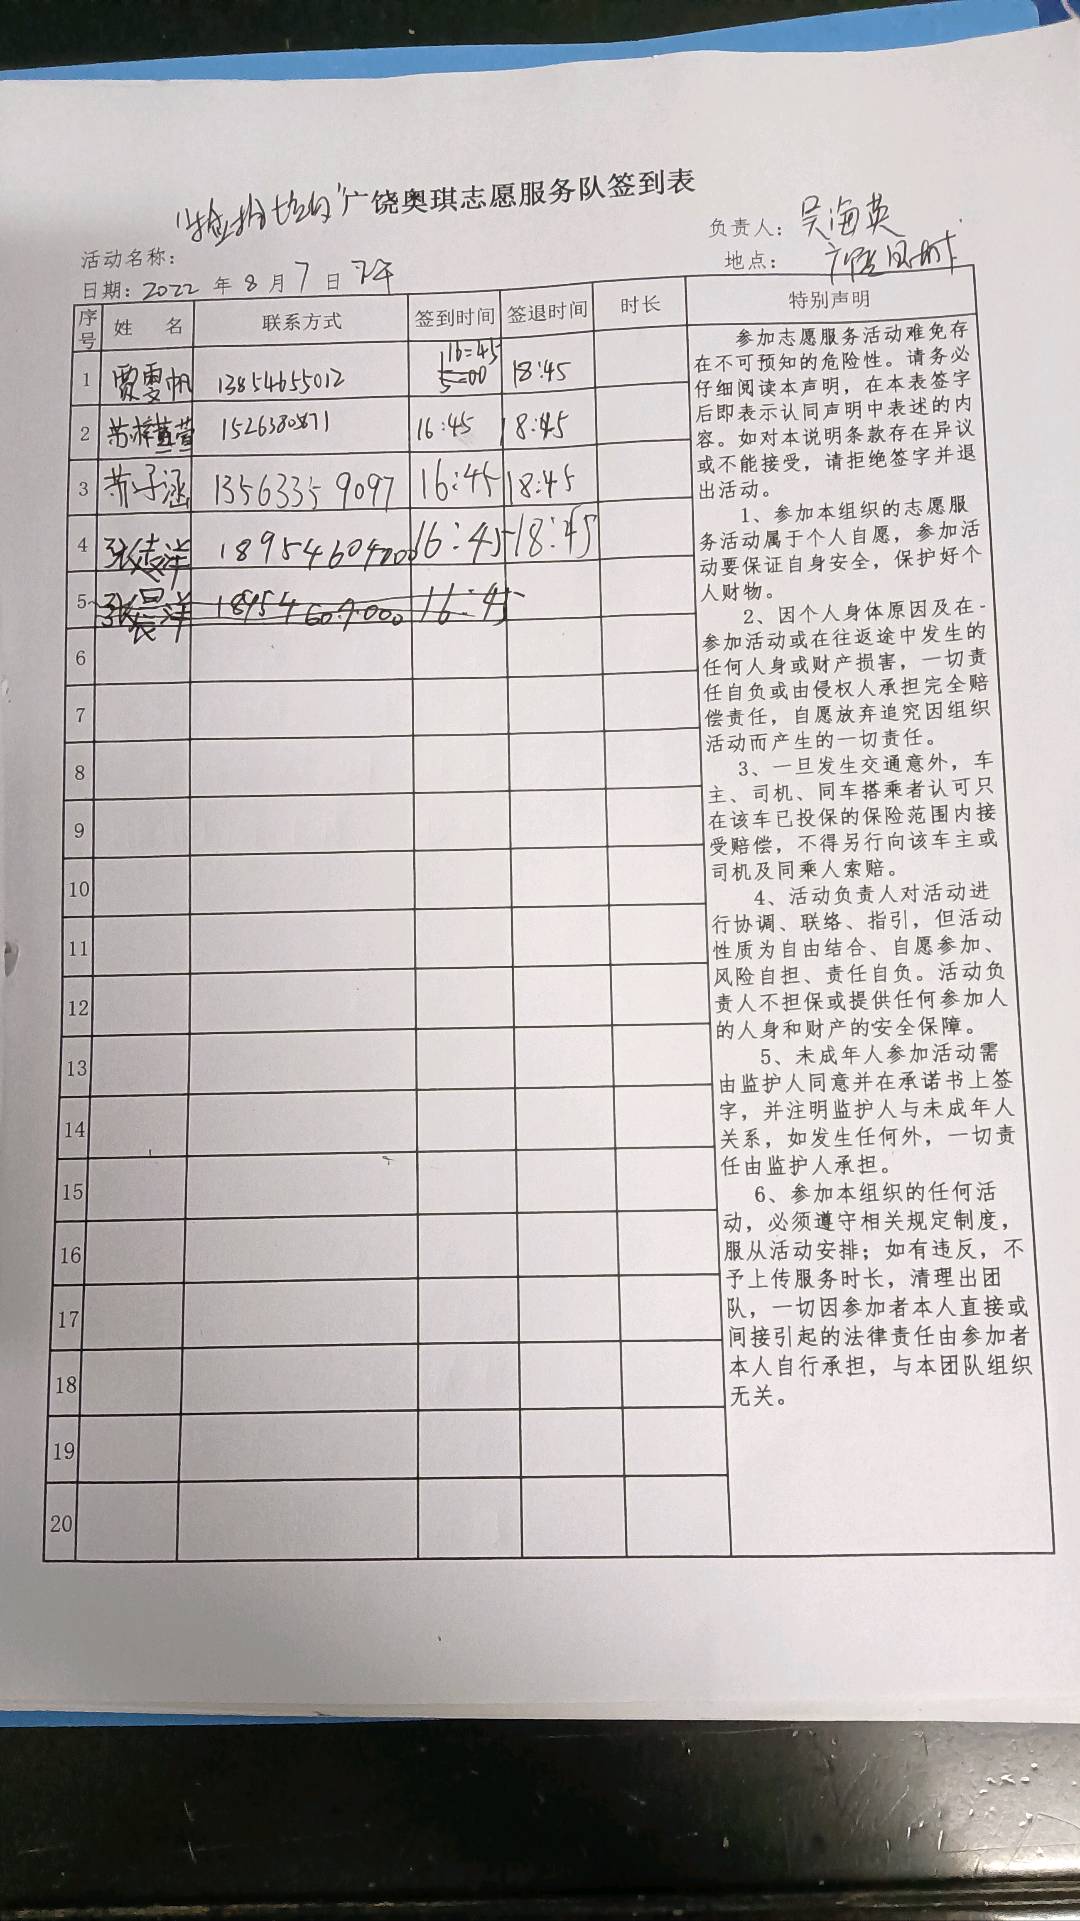 广饶奥琪志愿服务队签到表
活动名称：
负责人：吴海英
日期：2022 年 8 月 7 日 下午
地点：
序号 姓 名 联系方式 签到时间 签退时间 时长 特别声明
1 贾雯帆 13854655012 16:45 5:00 18:45
2 苏祥萱 15263380871 16:45 18:45
3 子涵 13563359097 16:45 18:45
4 张志洋 18954604000 16:45 18:45
5 张 洋 18954604000 16:45
6
7
8
9
10
11
12
13
14
15
16
17
18
19
20
参加志愿服务活动难免存
在不可预知的危险性。请务必
仔细阅读本声明，在本表签字
后即表示认同声明中表述的内
容。如对本说明条款存在异议
或不能接受，请拒绝签字并退
出活动。
1、参加本组织的志愿服
务活动属于个人自愿，参加活
动要保证自身安全，保护好个
人财物。
2、因个人身体原因及在-
参加活动或在往返途中发生的
任何人身或财产损害，一切责
任自负或由侵权人承担完全赔
偿责任，自愿放弃追究因组织
活动而产生的一切责任。
3、一旦发生交通意外，车
主、司机、同车搭乘者认可只
在该车已投保的保险范围内接
受赔偿，不得另行向该车主或
司机及同乘人索赔。
4、活动负责人对活动进
行协调、联络、指引，但活动
性质为自由结合、自愿参加、
风险自担、责任自负。活动负
责人不担保或提供任何参加人
的人身和财产的安全保障。
5、未成年人参加活动需
由监护人同意并在承诺书上签
字，并注明监护人与未成年人
关系，如发生任何外，一切责
任由监护人承担。
6、参加本组织的任何活
动，必须遵守相关规定制度，
服从活动安排；如有违反，不
予上传服务时长，清理出团
队，一切因参加者本人直接或
间接引起的法律责任由参加者
本人自行承担，与本团队组织
无关。